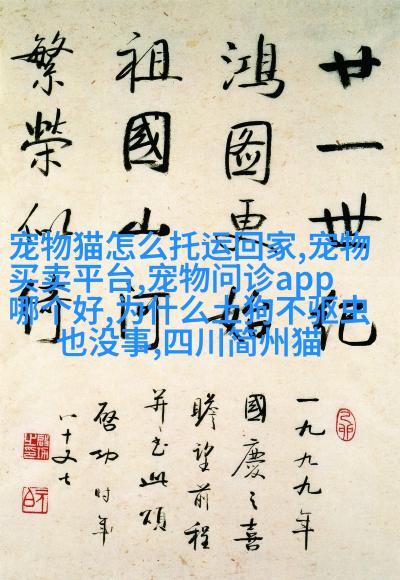 廿一世纪
鸿图更始
祖國山河
繁榮似绮
一九九九年
國慶之喜
瞻望前程
并书此頌
啓功时年
八十又七
宠物猫怎么托运回家,宠物
买卖平台,宠物问诊app
哪个好,为什么土狗不驱虫
也没事,四川简州猫